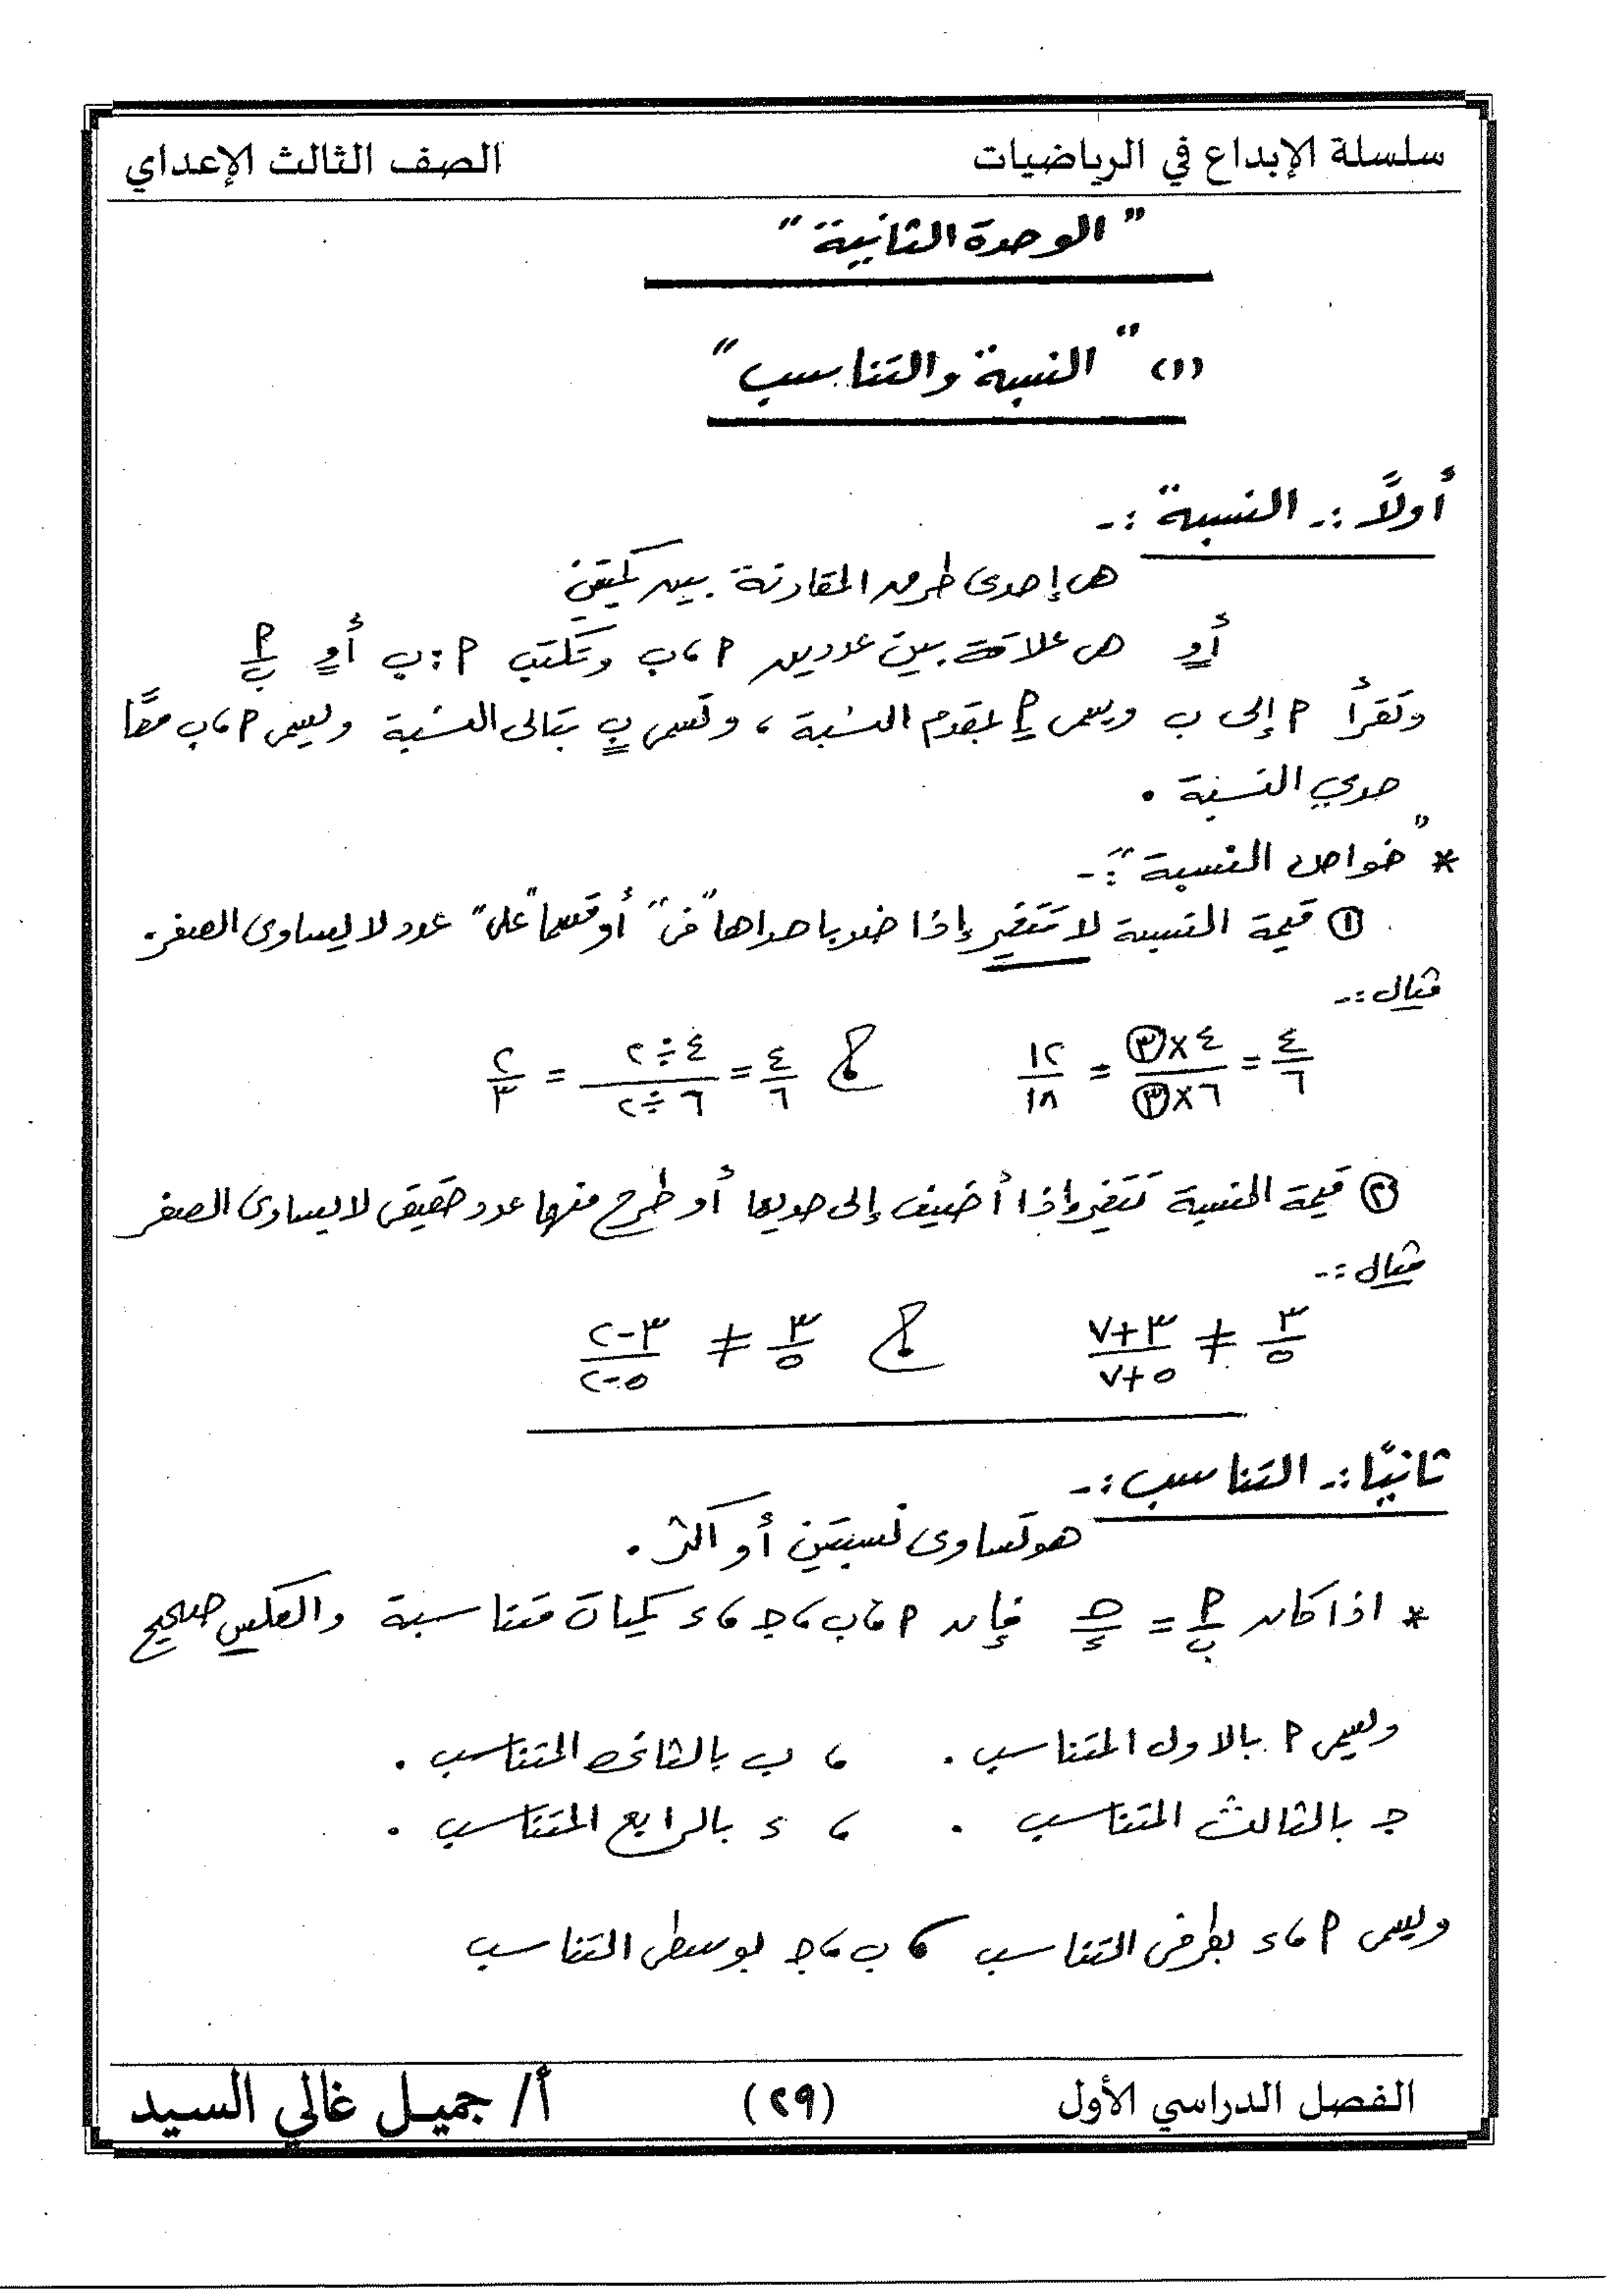 سلسلة الإبداع في الرياضيات الصف الثالث الإعداي
"الوحدة الثانية"
(١) "النسبة والتناسب"
أولاً :- النسبة :-
هى إحدى طرق المقارنة بين كميتين
أو هى علاقة بين عددين م ، ب وتكتب م : ب أو م/ب
وتقرأ م إلى ب ويسمى م بمقدم النسبة ، وتسمى ب بتالى النسبة ويسمى م ، ب معًا
حدي النسبة .
* "خواص النسبة" :-
① قيمة النسبة لا تتغير إذا ضرب حداها "فى" أو قسما "على" عدد لا يساوى الصفر .
مثال :-
٤/٦ = ٤×٣/٦×٣ = ١٢/١٨ ، ٤/٦ = ٤÷٢/٦÷٢ = ٢/٣
② قيمة النسبة تتغير إذا أضيف إلى حديها أو طرح منها عدد حقيقى لا يساوى الصفر
مثال :-
٣/٥ ≠ ٣+٧/٥+٧ ، ٣/٥ ≠ ٣-٢/٥-٢
ثانيًا :- التناسب :-
هو تساوى نسبتين أو أكثر .
* اذا كان م/ب = جـ/ء فإن م ، ب ، جـ ، ء كميات متناسبة والعكس صحيح
ويسمى م بالاول المتناسب . ، ب بالثانى المتناسب .
جـ بالثالث المتناسب . ، ء بالرابع المتناسب .
ويسمى م ، ء بطرفى التناسب ، ب ، جـ بوسطى التناسب
الفصل الدراسي الأول (٢٩) أ/ جميل غالي السيد